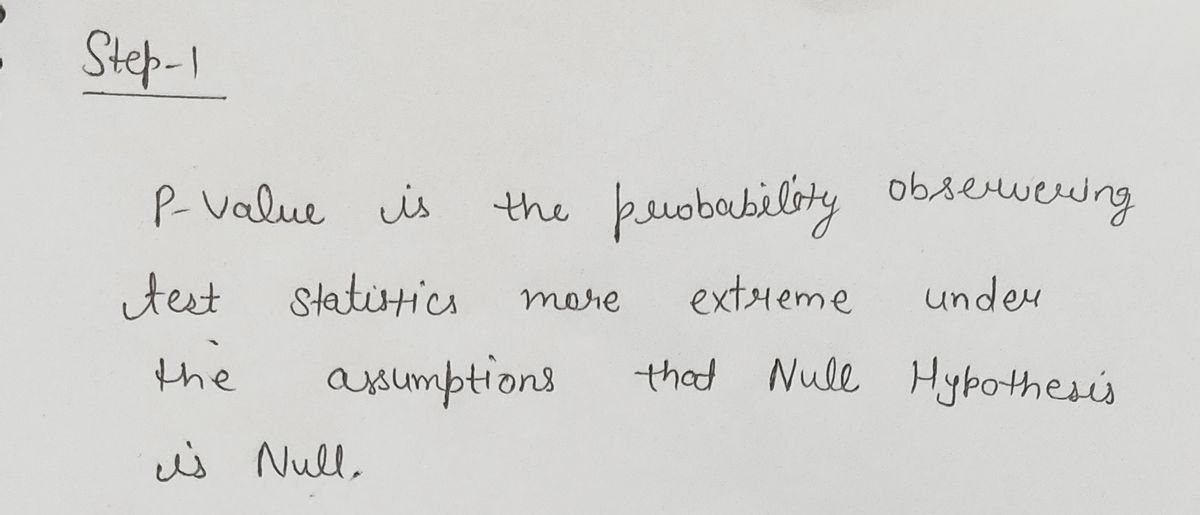 Step-1
P-Value is the probability observering
test statistics more extreme under
the assumptions that Null Hypothesis
is Null.